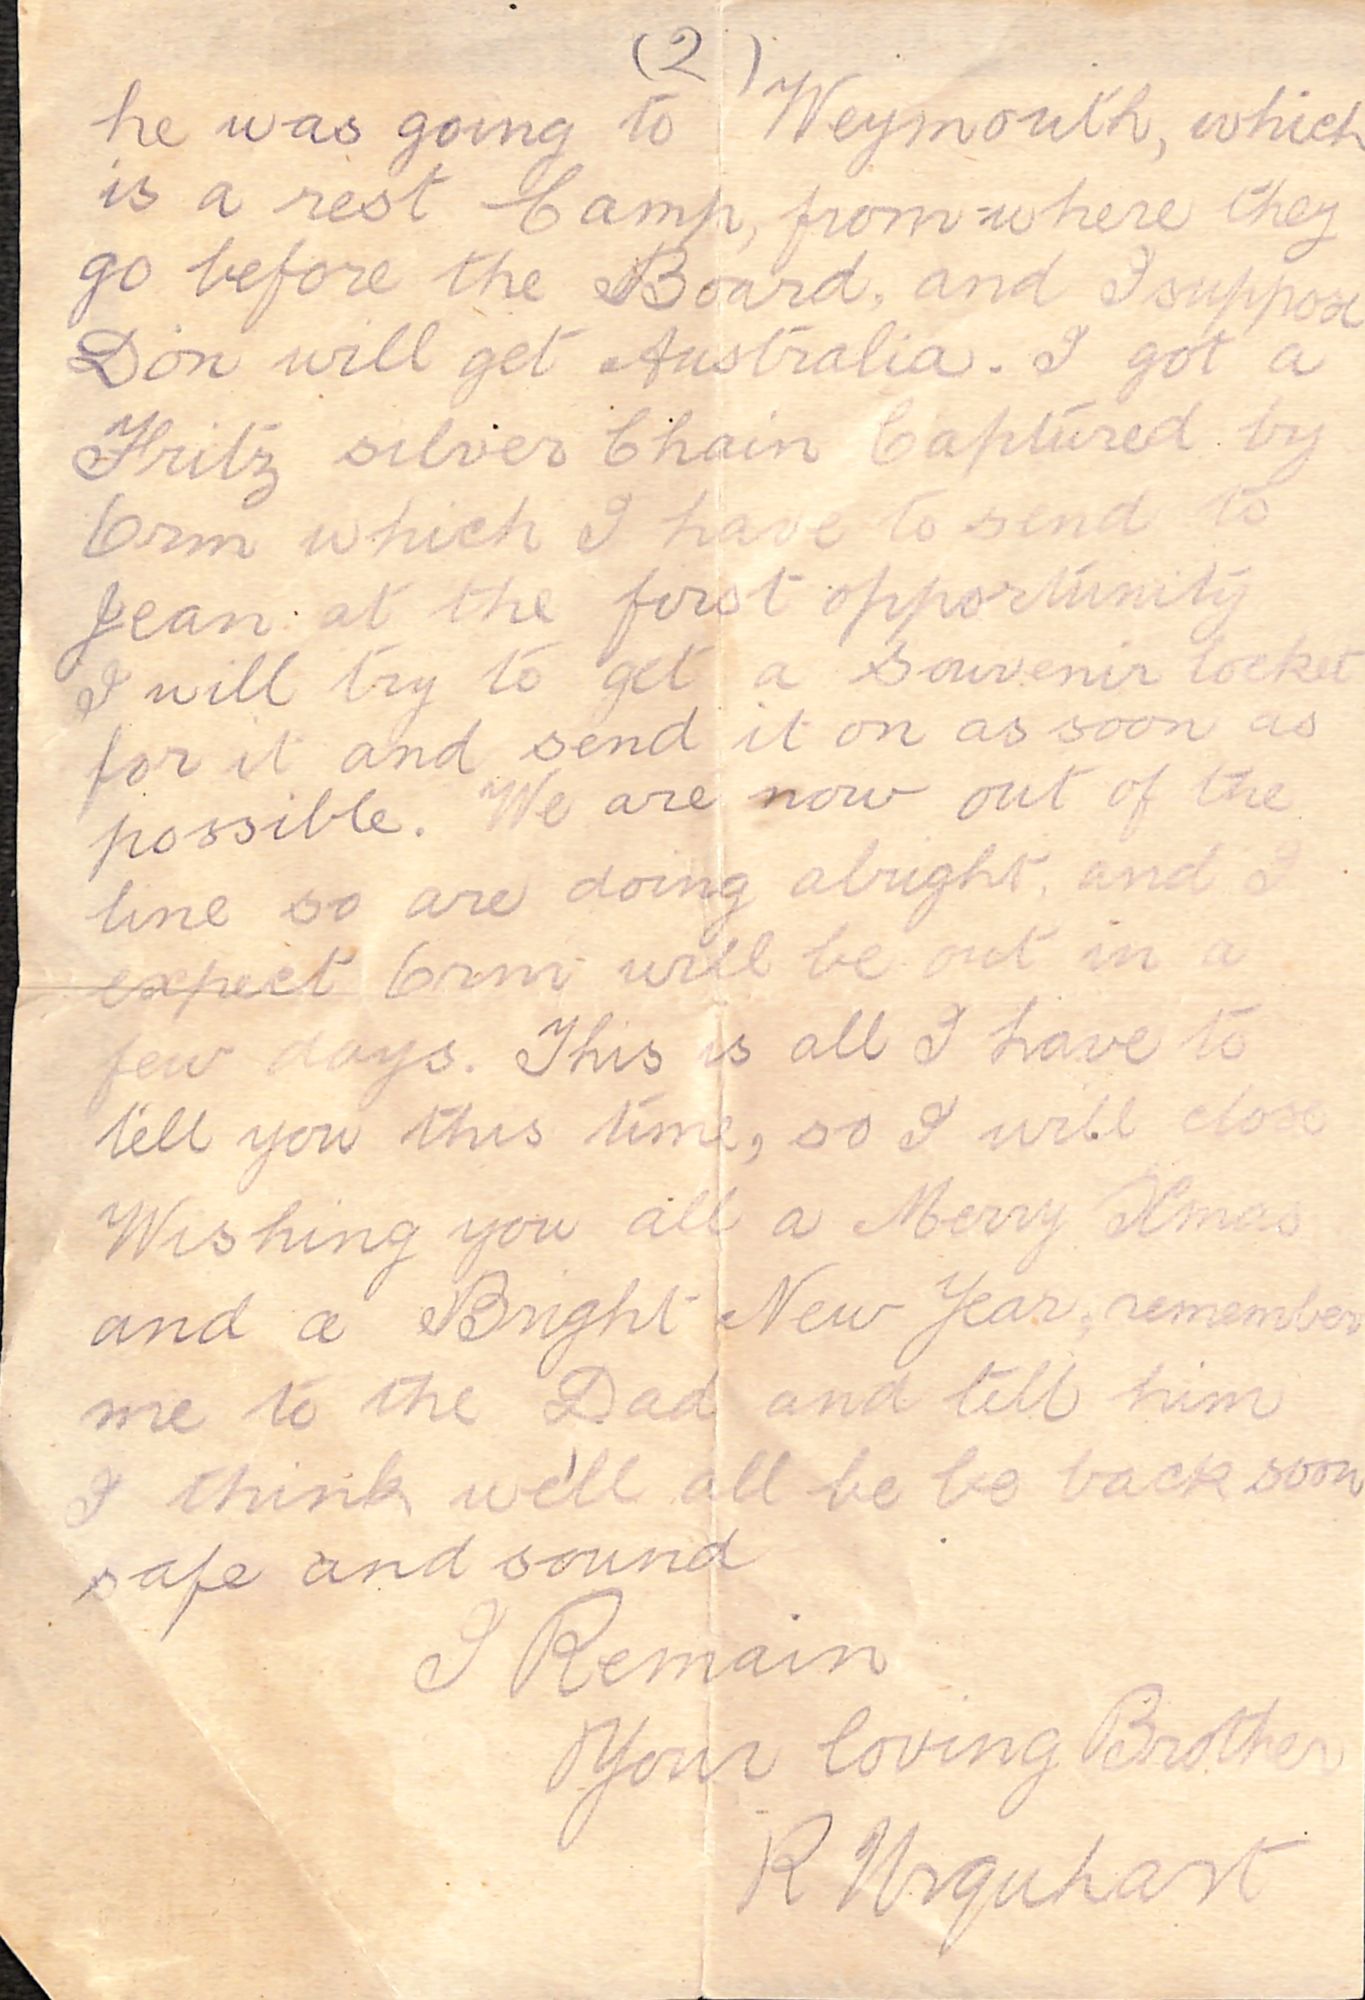 (2)
he was going to Weymouth, which
is a rest Camp, from where they
go before the Board, and I suppose
Don will get Australia. I got a
Fritz silver Chain Captured by
Orm which I have to send to
Jean at the first opportunity
I will try to get a souvenir locket
for it and send it on as soon as
possible. We are now out of the
line so are doing alright, and I
expect Orm will be out in a
few days. This is all I have to
tell you this time, so I will close
Wishing you all a Merry Xmas
and a Bright New Year, remember
me to the Dad and tell him
I think we'll all be be back soon
safe and sound
I Remain
Your loving Brother
R Urquhart